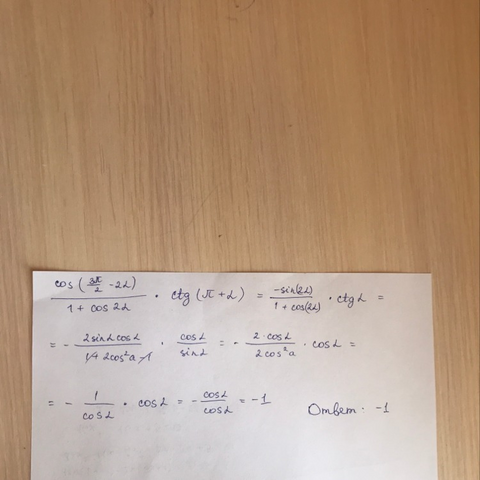 cos(3π/2 - 2α) / 1 + cos 2α · ctg(π + α) = -sin(2α) / 1 + cos(2α) · ctg α =
= - 2 sin α cos α / 1 + 2cos²a - 1 · cos α / sin α = - 2 · cos α / 2 cos²a · cos α =
= - 1 / cos α · cos α = - cos α / cos α = -1 Ответ: -1